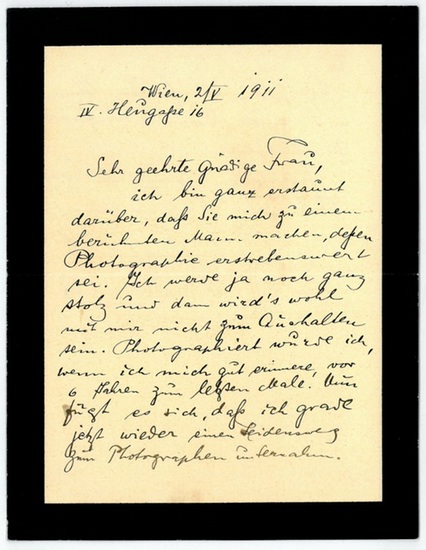 Wien, 2/V 1911
IV. Heugaße 16
Sehr geehrte Gnädige Frau,
ich bin ganz erstaunt
darüber, daß Sie mich zu einem
berühmten Mann machen, deßen
Photographie erstrebenswert
sei. Ich werde ja noch ganz
stolz und dann wird's wohl
mit mir nicht zum Aushalten
sein. Photographiert wurde ich,
wenn ich mich gut erinnere, vor
6 Jahren zum letzten Male. Nun
fügt es sich, daß ich grade
jetzt wieder einen Leidensweg
zum Photographen unternahm.